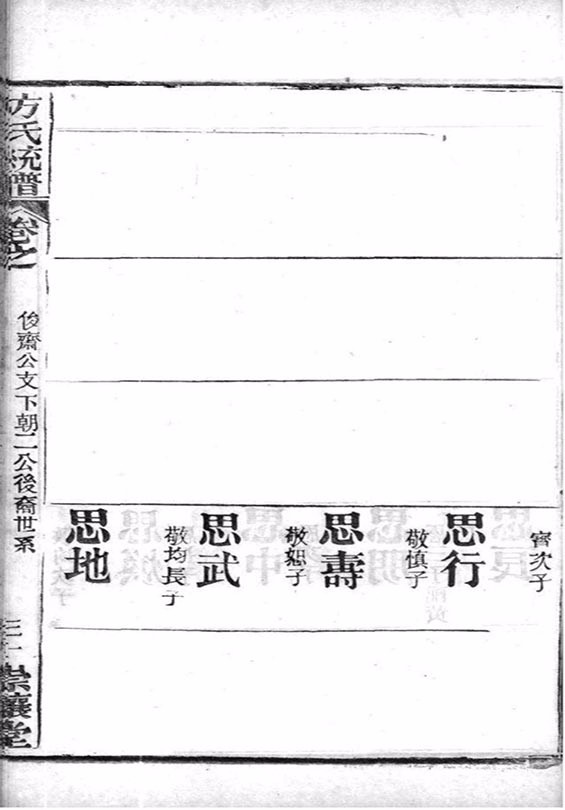 甯次子
思行
敬慎子
思壽
敬恕子
思武
敬均長子
思地
方氏統譜
卷之
後齋公支下朝二公後裔世系
三十
崇讓堂